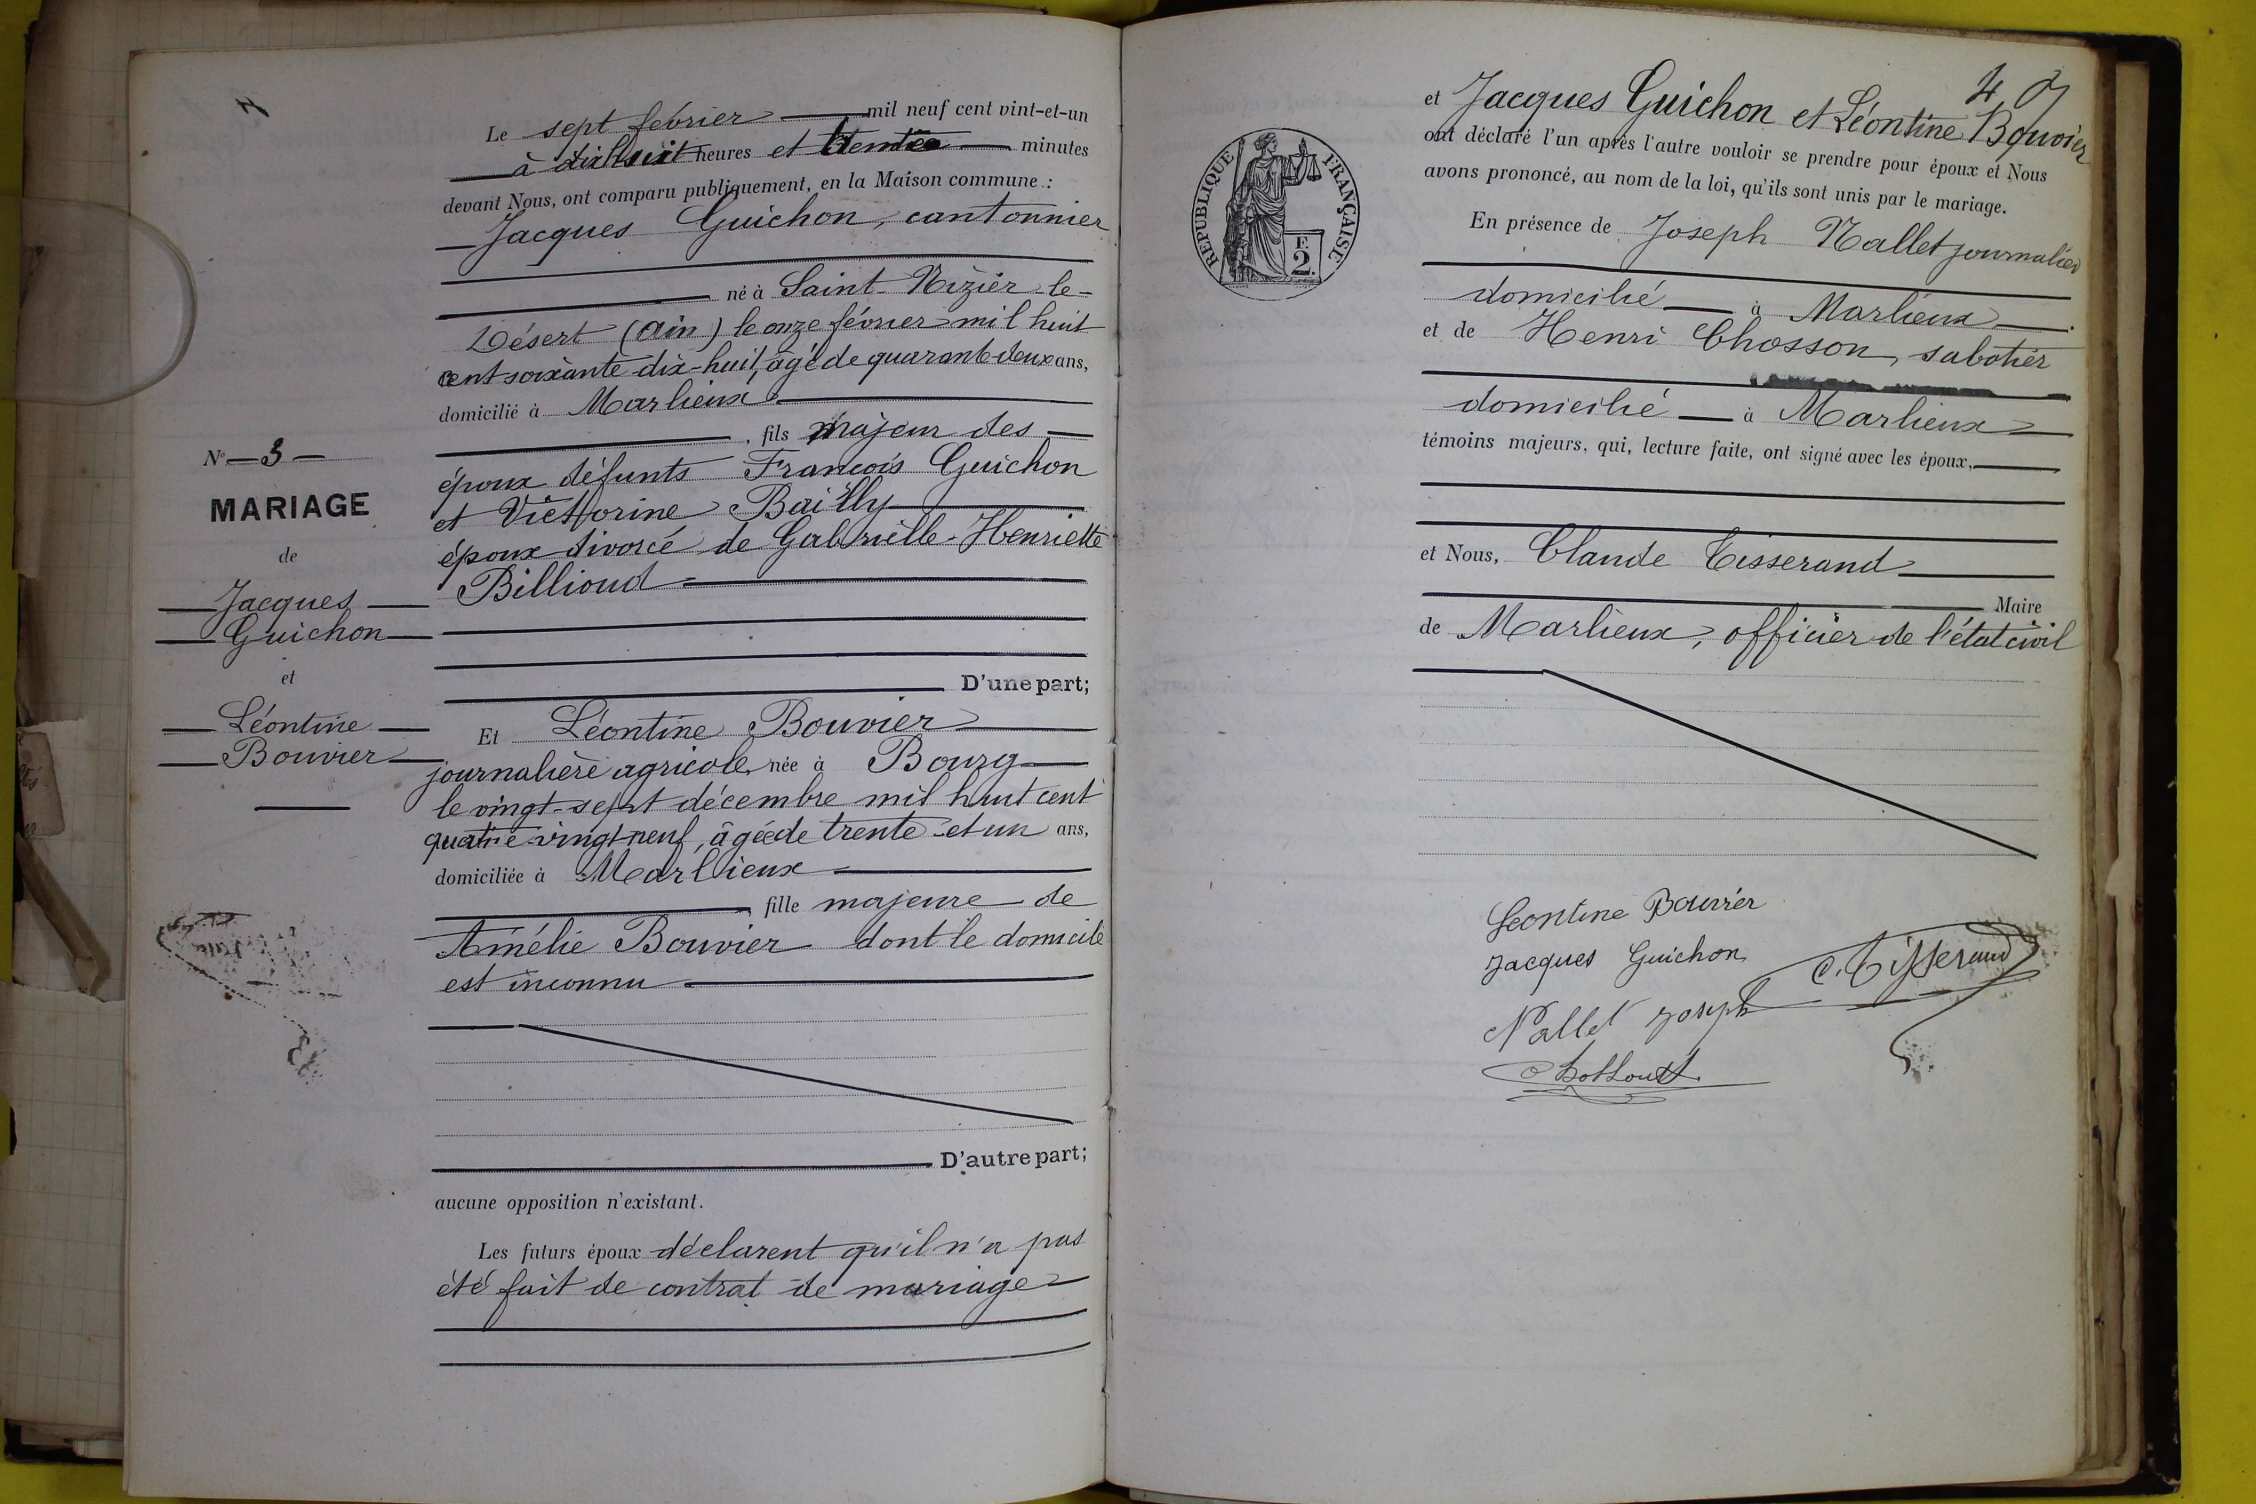 N° 3
MARIAGE
de
Jacques
Guichon
et
Léontine
Bouvier
Le sept février mil neuf cent vint-et-un
à dix huit heures et trente minutes
devant Nous, ont comparu publiquement, en la Maison commune :
Jacques Guichon, cantonnier
né à Saint-Nizier-le-
Désert (Ain) le onze février mil huit
cent soixante dix-huit, âgé de quarante deux ans,
domicilié à Marlieux
, fils majeur des
époux défunts François Guichon
et Victorine Bailly
époux divorcé de Gabrielle-Henriette
Billioud
D'une part;
Et Léontine Bouvier
journalière agricole, née à Bourg
le vingt-sept décembre mil huit cent
quatre-vingt-neuf, âgée de trente et un ans,
domiciliée à Marlieux
, fille majeure de
Amélie Bouvier dont le domicile
est inconnu
D'autre part;
aucune opposition n'existant.
Les futurs époux déclarent qu'il n'a pas
été fait de contrat de mariage
4
et Jacques Guichon et Léontine Bouvier
ont déclaré l'un après l'autre vouloir se prendre pour époux et Nous
avons prononcé, au nom de la loi, qu'ils sont unis par le mariage.
RÉPUBLIQUE FRANÇAISE
F.
2.
En présence de Joseph Nallet journalier
domicilié à Marlieux
et de Henri Chosson, sabotier
domicilié à Marlieux
témoins majeurs, qui, lecture faite, ont signé avec les époux,
et Nous, Claude Tisserand
Maire
de Marlieux, officier de l'état civil
Leontine Bouvier
Jacques Guichon
C. Tisserand
Nallet Joseph